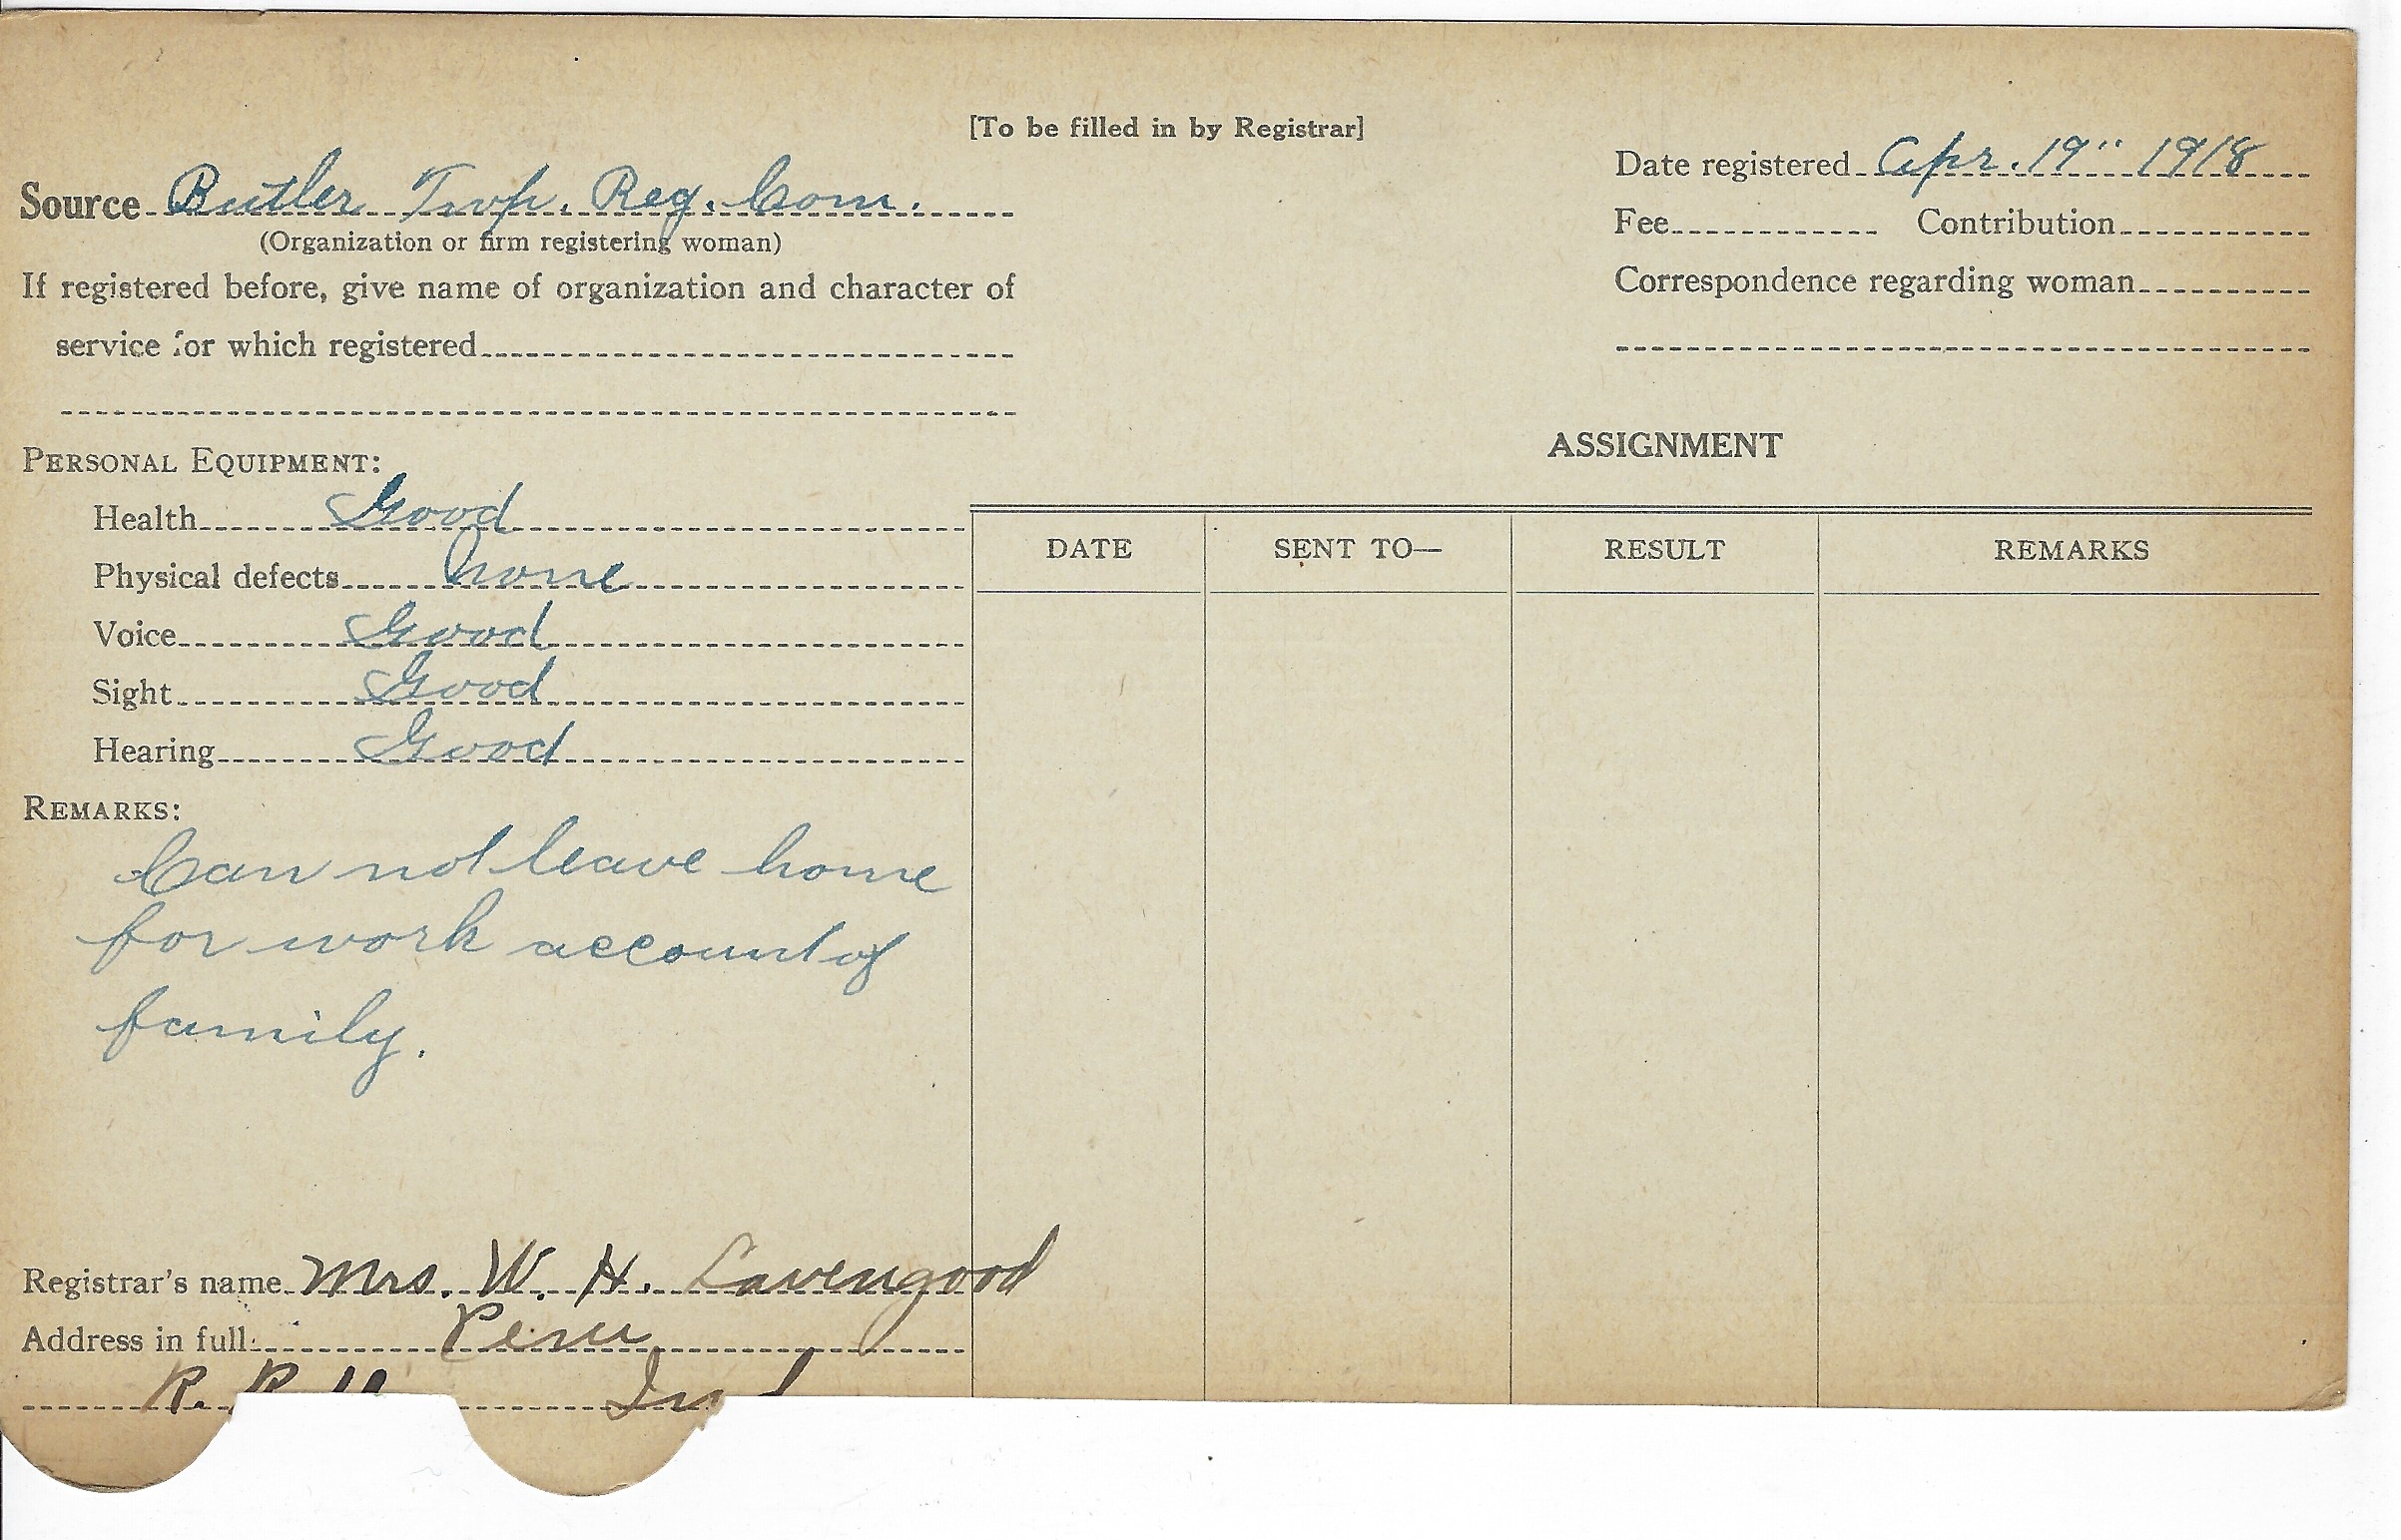 [To be filled in by Registrar]
Source Butler Twp. Reg. Com.
(Organization or firm registering woman)
If registered before, give name of organization and character of
service for which registered
Date registered Apr. 19" 1918
Fee Contribution
Correspondence regarding woman
PERSONAL EQUIPMENT:
Health Good
Physical defects none
Voice Good
Sight Good
Hearing Good
REMARKS:
Can not leave home
for work account of
family.
ASSIGNMENT
DATE SENT TO— RESULT REMARKS
Registrar's name Mrs. W. H. Lavengood
Address in full: Peru
R. R. Ind